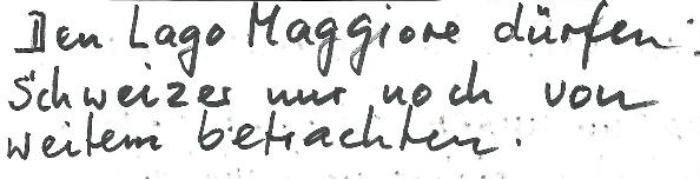 Den Lago Maggiore dürfen
Schweizer nur noch von
weitem betrachten.